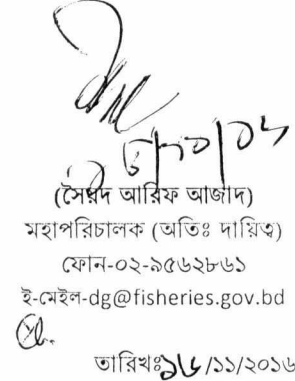 (সৈয়দ আরিফ আজাদ)
মহাপরিচালক (অতিঃ দায়িত্ব)
ফোন-০২-৯৫৬২৮৬১
ই-মেইল-dg@fisheries.gov.bd
তারিখঃ /১১/২০১৬